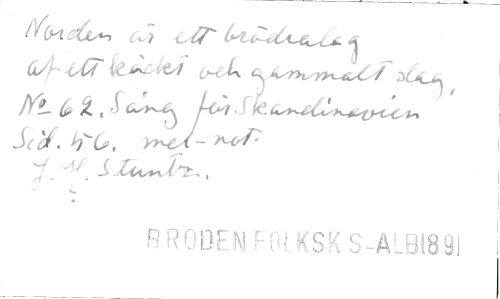 Norden är ett brödralag
af ett käckt och gammalt slag,
No 62. Sång för Skandinavien
Sid. 56. mel-not.
J. H. Stuntz.
BRODEN FOLKSKS-ALB1891